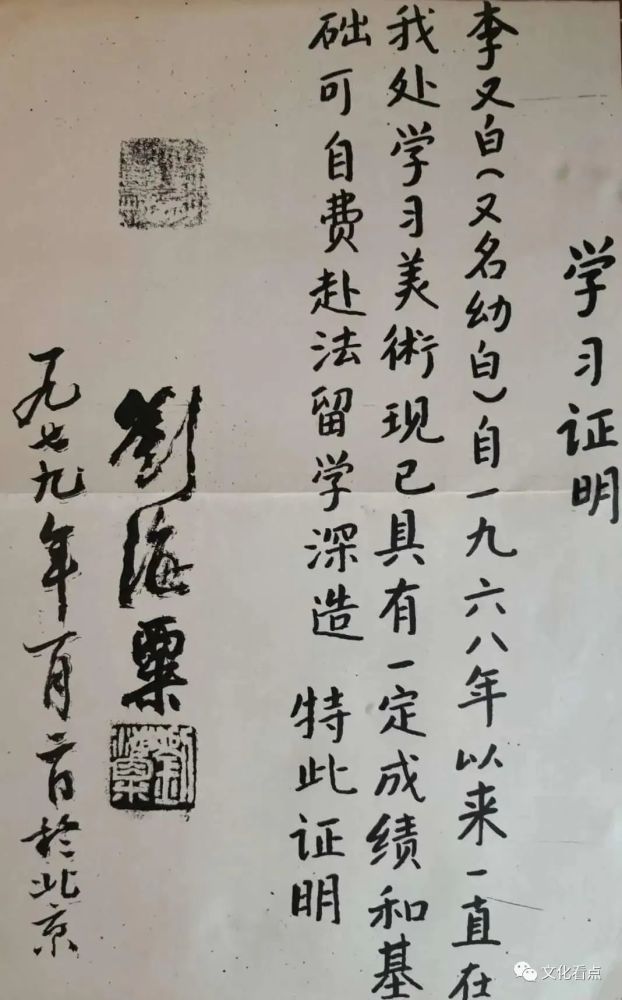 学习证明
李又白（又名幼白）自一九六八年以来一直在
我处学习美術现已具有一定成绩和基
础可自费赴法留学深造 特此证明
劉海粟
劉海粟
一九七九年一月六日於北京
文化看点